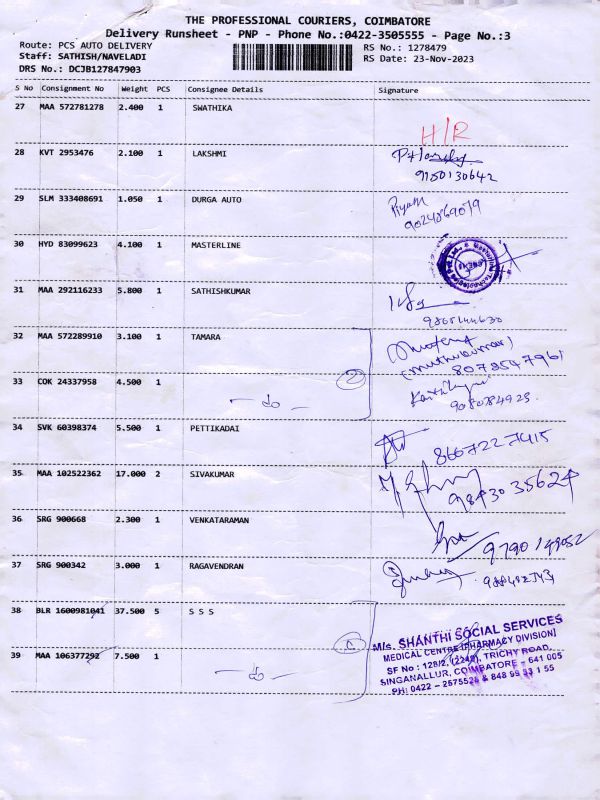 THE PROFESSIONAL COURIERS, COIMBATORE
Delivery Runsheet - PNP - Phone No.:0422-3505555 - Page No.:3
Route: PCS AUTO DELIVERY RS No.: 1278479
Staff: SATHISH/NAVELADI RS Date: 23-Nov-2023
DRS No.: DCJB127847903
S No Consignment No Weight PCS Consignee Details Signature
27 MAA 572781278 2.400 1 SWATHIKA
H/R
28 KVT 2953476 2.100 1 LAKSHMI
9150130642
29 SLM 333408691 1.050 1 DURGA AUTO
30 HYD 83099623 4.100 1 MASTERLINE
31 MAA 292116233 5.800 1 SATHISHKUMAR
9865144630
32 MAA 572289910 3.100 1 TAMARA
(muthukumar)
8078547961
33 COK 24337958 4.500 1
2
- do -
9080784925
34 SVK 60398374 5.500 1 PETTIKADAI
8667227415
35 MAA 102522362 17.000 2 SIVAKUMAR
9843035624
36 SRG 900668 2.300 1 VENKATARAMAN
9790149052
37 SRG 900342 3.000 1 RAGAVENDRAN
38 BLR 1600981041 37.500 5 S S S
M/s. SHANTHI SOCIAL SERVICES
MEDICAL CENTRE [PHARMACY DIVISION]
39 MAA 106377292 7.500 1
- do -
SF No : 128/2, (2249), TRICHY ROAD,
SINGANALLUR, COIMBATORE - 641 005
PH: 0422 - 2575528 & 848 99 33 1 55